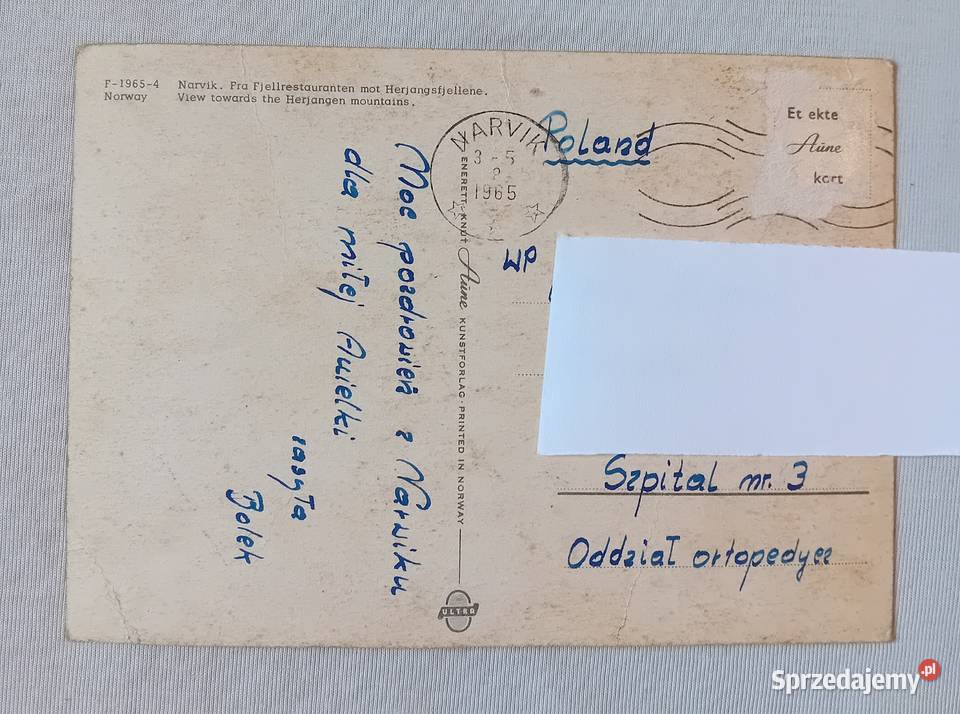 F-1965-4 Narvik. Fra Fjellrestauranten mot Herjangsfjellene.
Norway View towards the Herjangen mountains.
Moc pozdrowień z Narwiku
dla miłej Anielki
zasyła
Bolek
NARVIK
3-5
1965
ENERETT: KNUT Aūne KUNSTFORLAG · PRINTED IN NORWAY
ULTRA
Et ekte
Aūne
kort
Poland
WP
Szpital nr. 3
Oddział ortopedycz
Sprzedajemy.pl